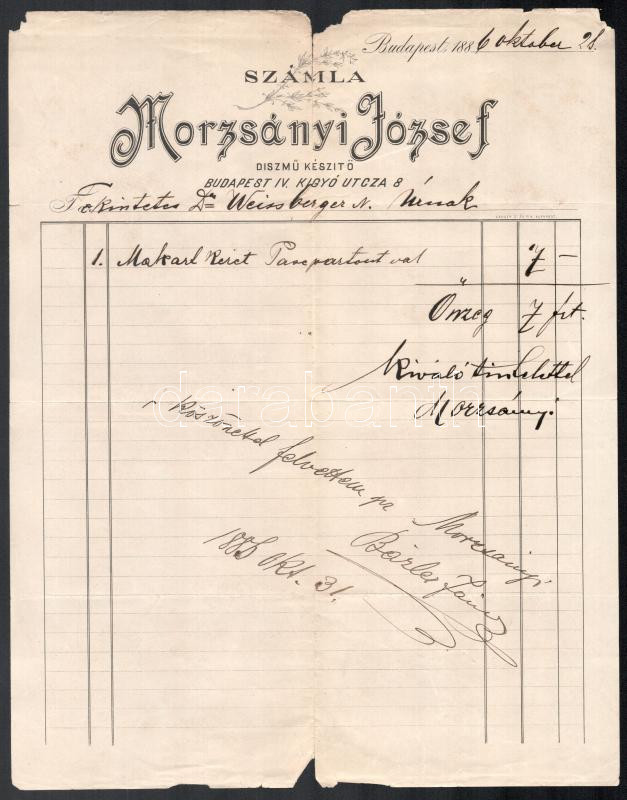 Budapest, 1886 oktober 28.
SZÁMLA
Morzsányi József
DISZMŰ KÉSZITŐ
BUDAPEST IV. KIGYÓ UTCZA 8
Tekintetes Dr Weissberger N. Úrnak
1. Makart keret Pasepartout val 7 —
Összeg 7 frt.
Kiváló tisztelettel
Morzsányi
Köszönettel felvettem pr Morzsányi
János
1886 okt. 31.
darabanth